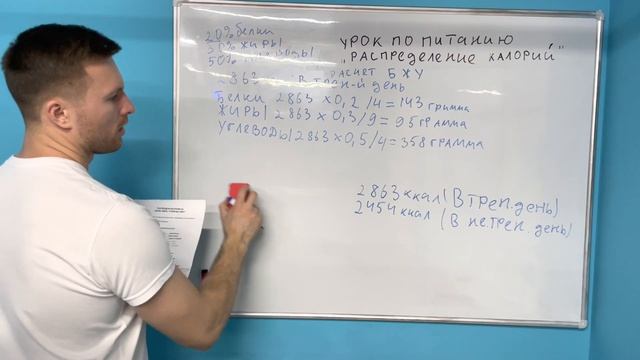 20% белки
30% жиры
50%
УРОК ПО ПИТАНИЮ
"РАСПРЕДЕЛЕНИЕ КАЛОРИЙ"
РАСЧЕТ БЖУ
2863 В ТРЕН-Й ДЕНЬ
БЕЛКИ 2863 х 0,2 /4 = 143 гримма
ЖИРЫ 2863 х 0,3/9 = 95 грамма
УГЛЕВОДЫ 2863 х 0,5/4 = 358 грамма
2863 ккал (В ТРЕН. день)
2454 ккал (В не.ТРЕН. день)